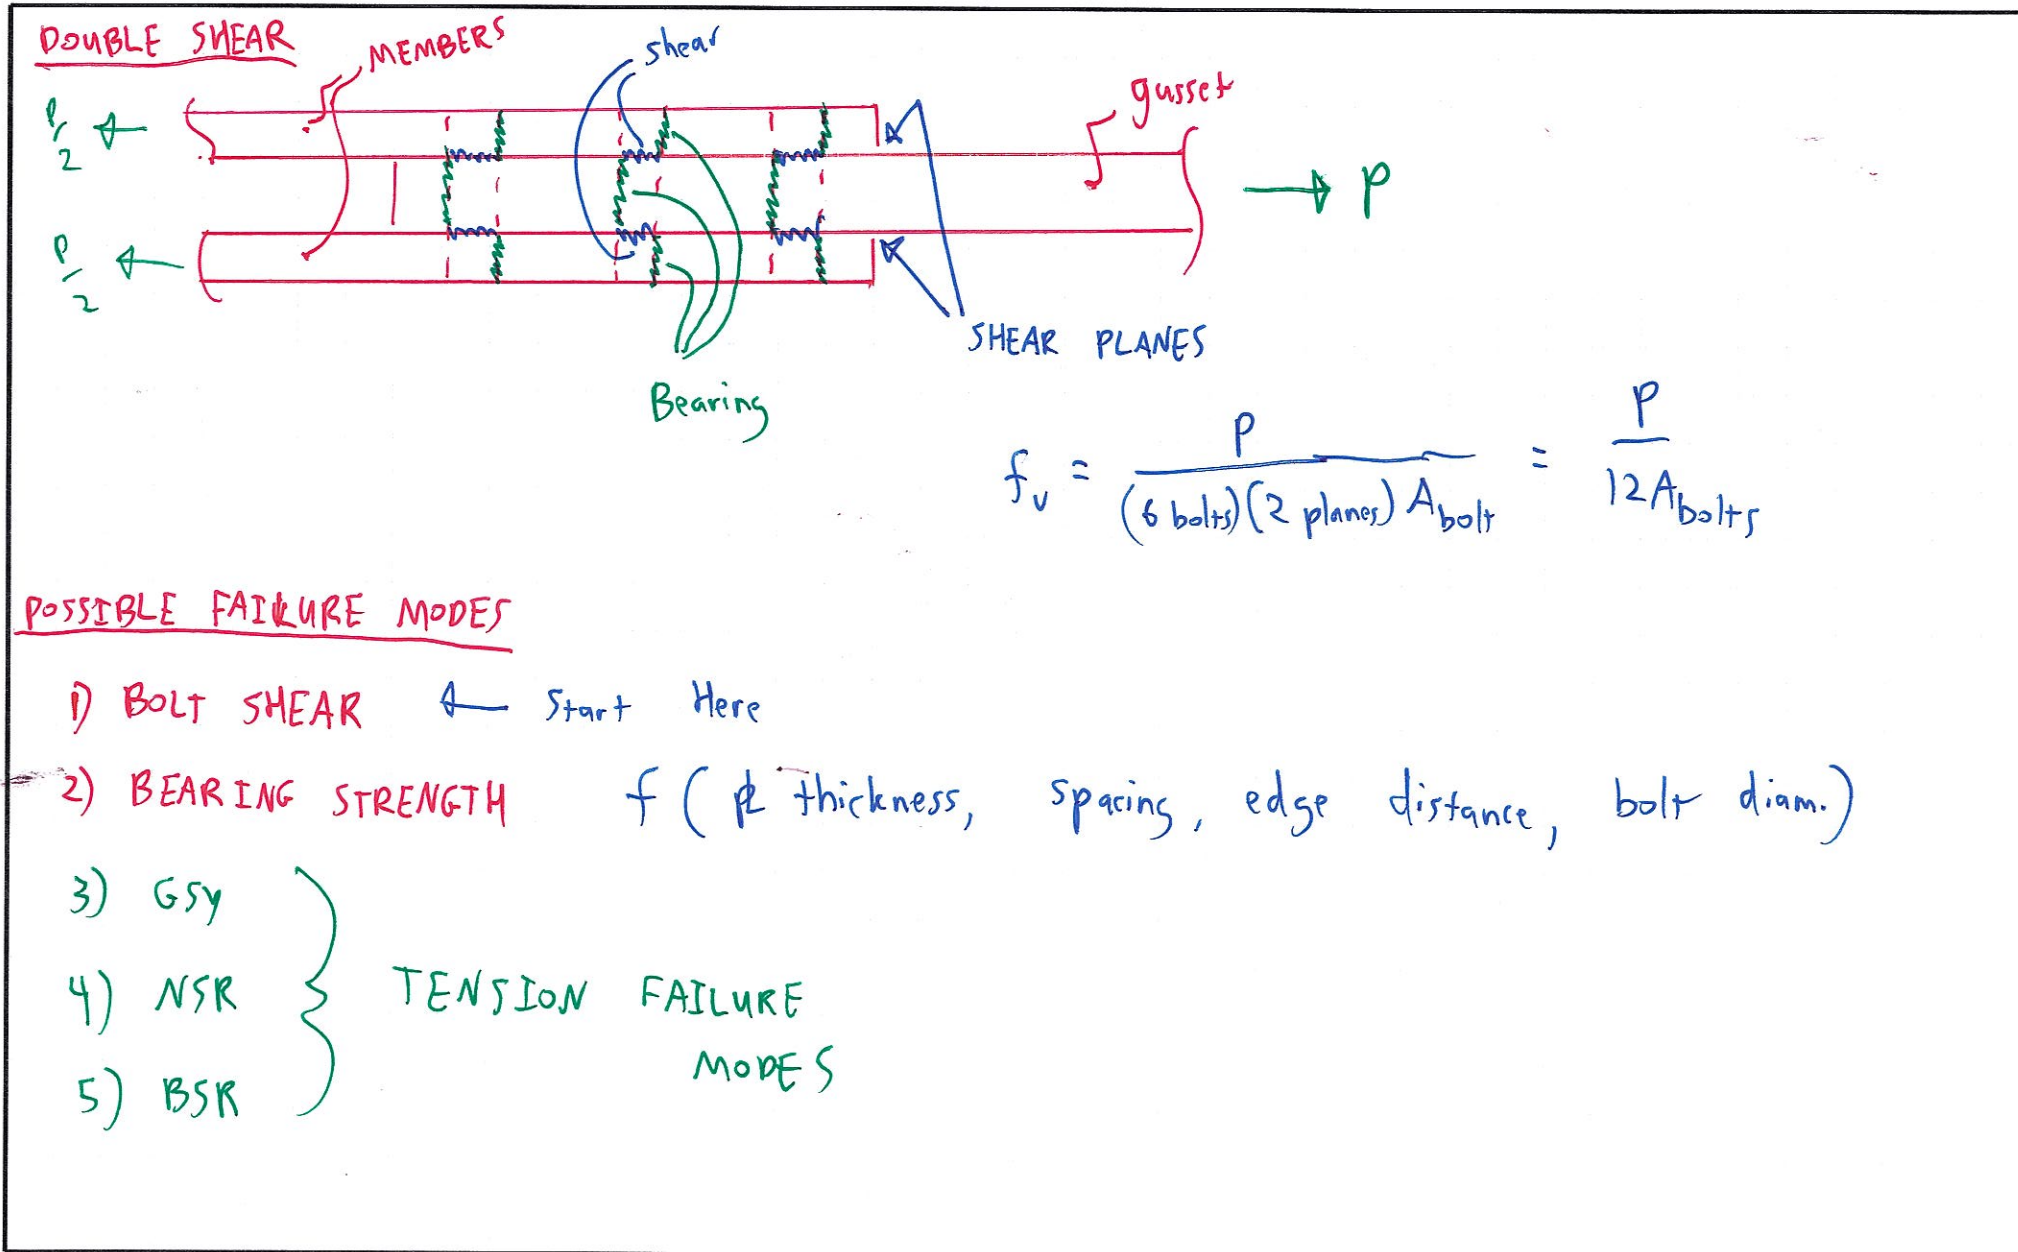 DOUBLE SHEAR
MEMBERS
shear
gusset
P/2
P
P/2
SHEAR PLANES
Bearing
f_v = P / (6 bolts)(2 planes) A_bolt = P / 12 A_bolts
POSSIBLE FAILURE MODES
1) BOLT SHEAR ← Start Here
2) BEARING STRENGTH f ( PL thickness, spacing, edge distance, bolt diam.)
3) GSY
4) NSR
TENSION FAILURE
MODES
5) BSR